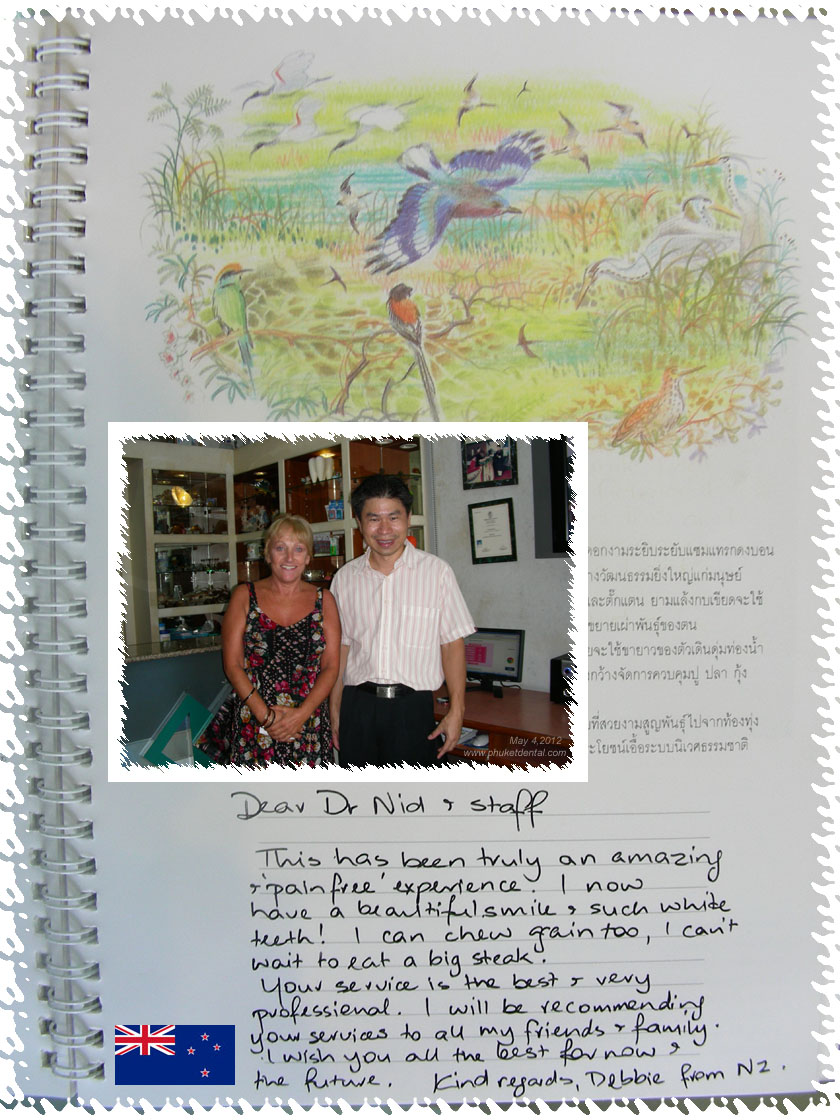 ดอกงามระยิบระยับแซมแทรกดงบอน
างวัฒนธรรมยิ่งใหญ่แก่มนุษย์
และตั๊กแตน ยามแล้งกบเขียดจะใช้
ขยายเผ่าพันธุ์ของตน
จะใช้ขายาวของตัวเดินดุ่มท่องน้ำ
กว้างจัดการควบคุมปู ปลา กุ้ง
ที่สวยงามสูญพันธุ์ไปจากท้องทุ่ง
ะโยชน์เอื้อระบบนิเวศธรรมชาติ
May 4,2012
www.phuketdental.com
Dear Dr Nid & staff
This has been truly an amazing
& 'pain free' experience. I now
have a beautiful smile & such white
teeth! I can chew grain too, I can't
wait to eat a big steak.
Your service is the best & very
professional. I will be recommending
your services to all my friends & family.
I wish you all the best for now &
the future. Kind regards, Debbie from NZ.